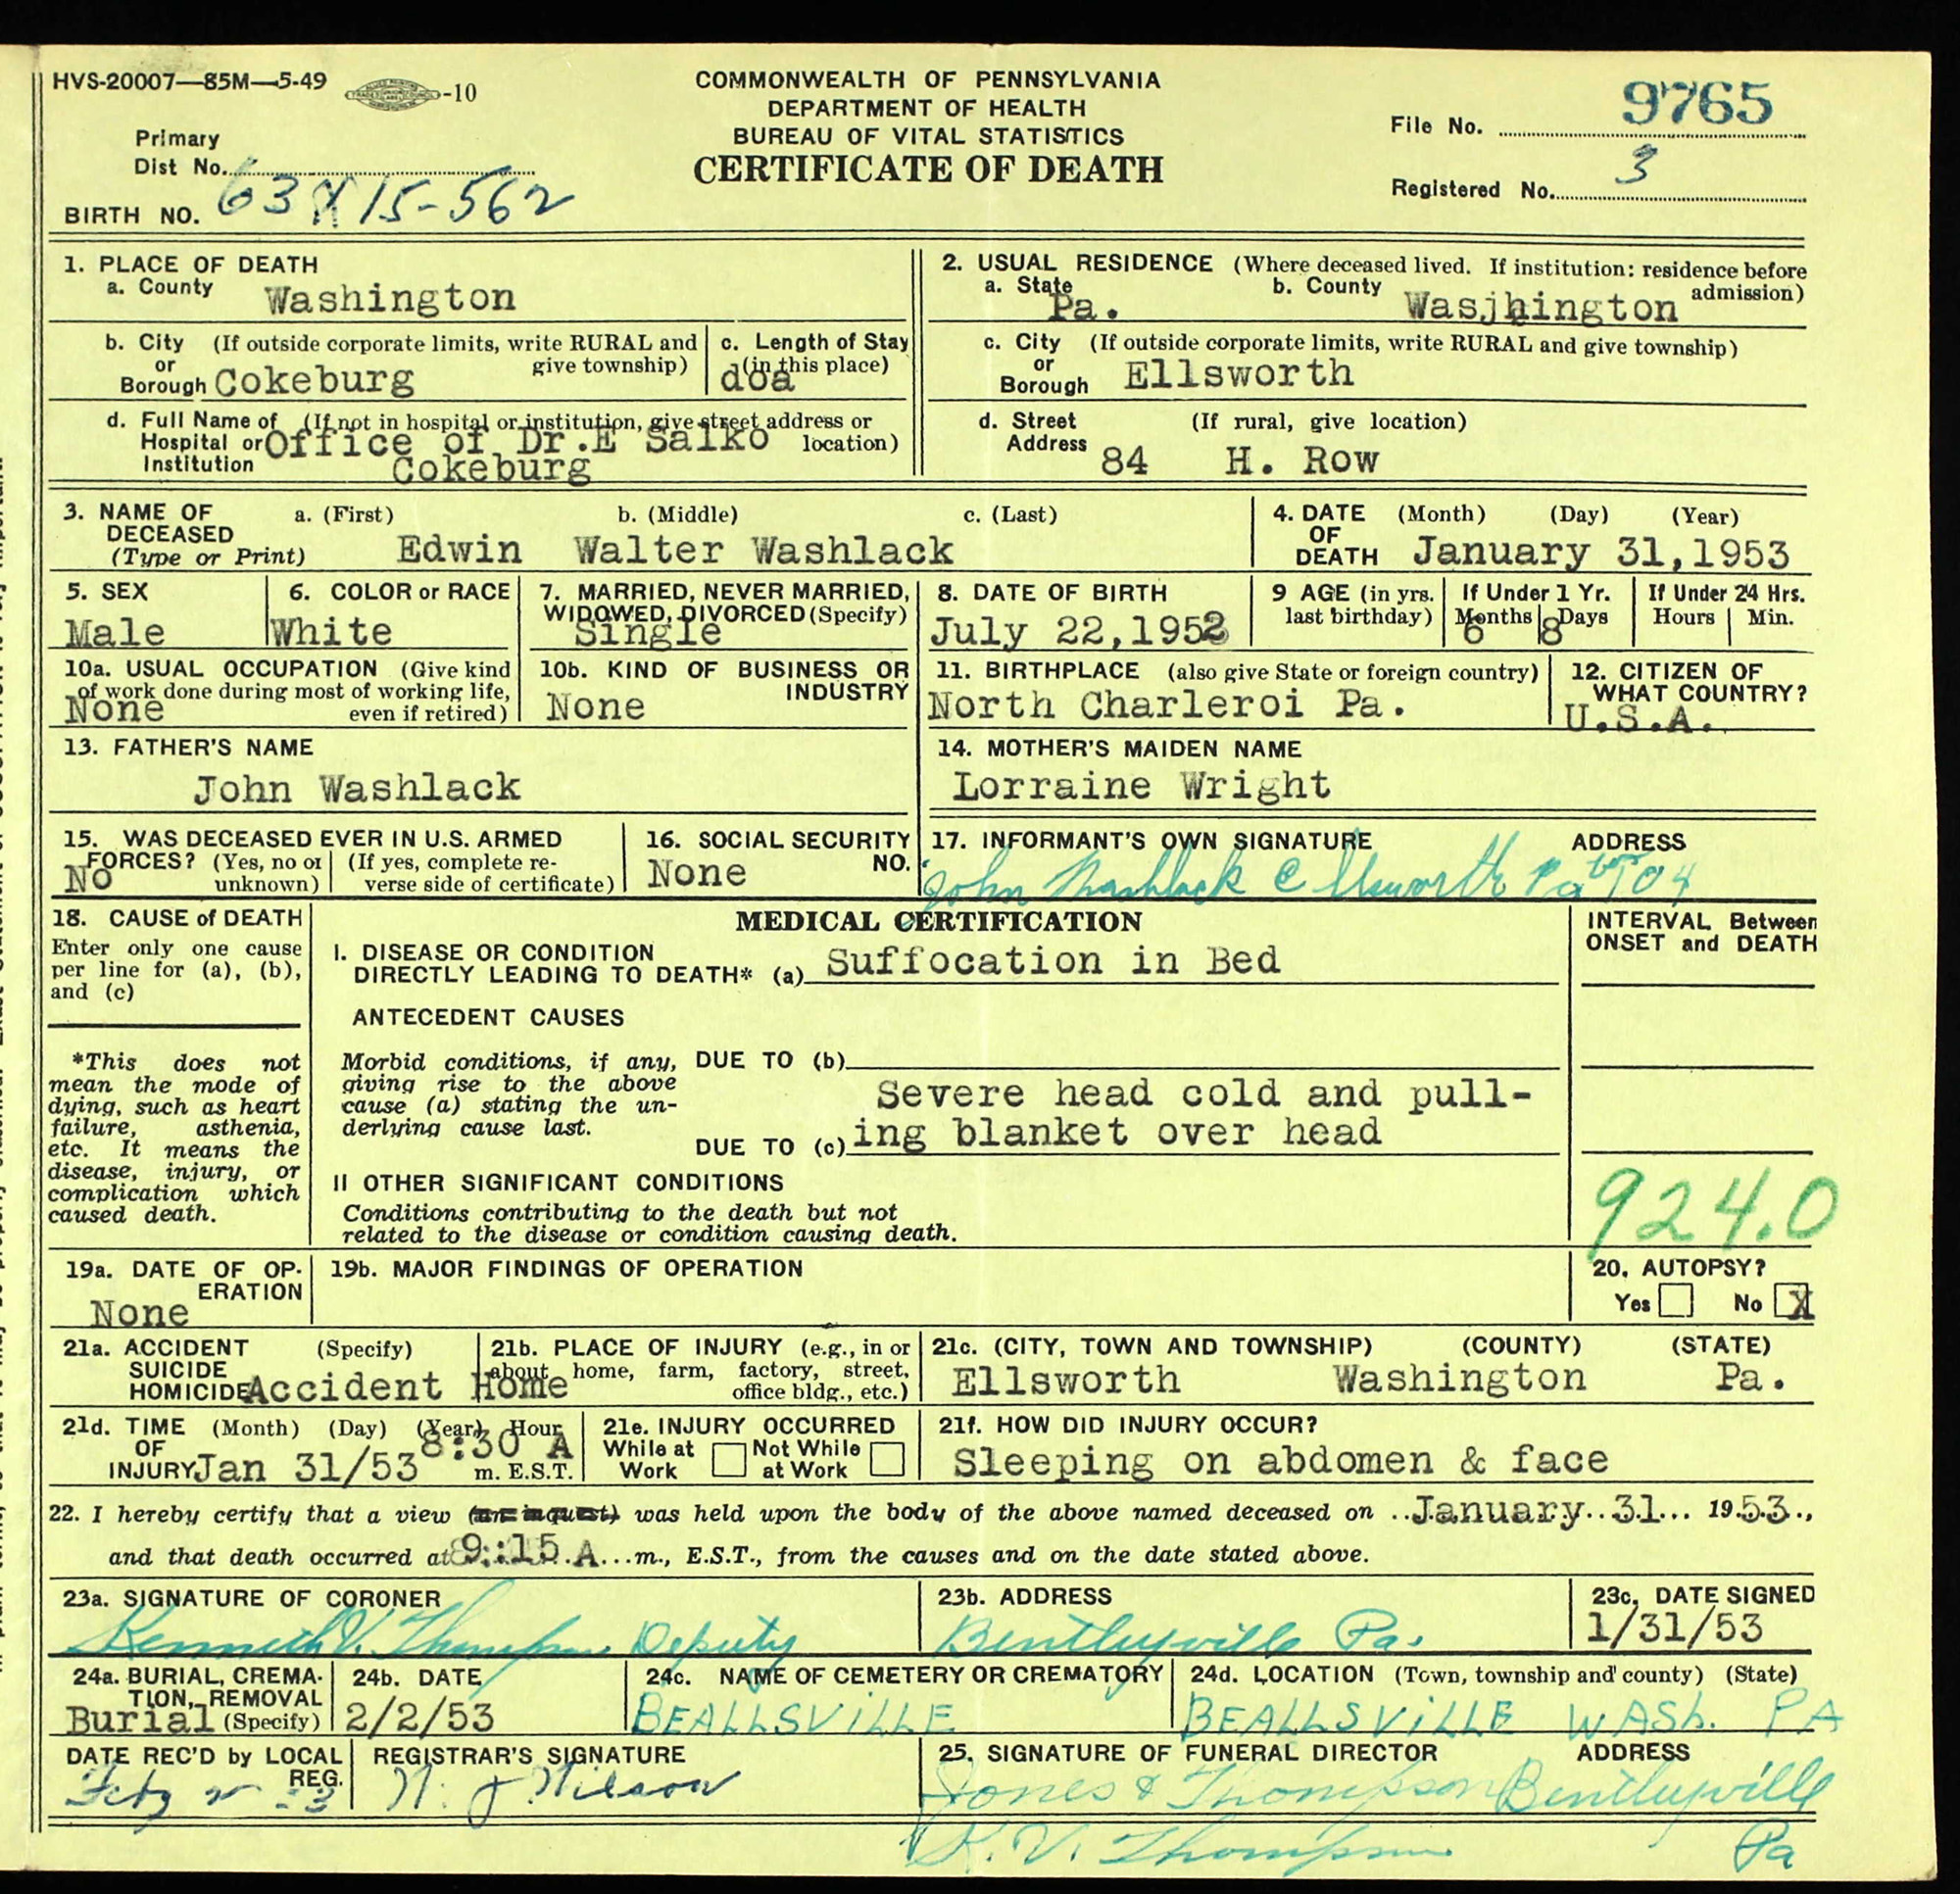 HVS-20007—85M—5-49 -10
COMMONWEALTH OF PENNSYLVANIA
DEPARTMENT OF HEALTH
BUREAU OF VITAL STATISTICS
CERTIFICATE OF DEATH
File No. 9765
Registered No. 3
Primary
Dist No. 63 X 15-562
BIRTH NO.
1. PLACE OF DEATH
a. County Washington
2. USUAL RESIDENCE (Where deceased lived. If institution: residence before admission)
a. State Pa. b. County Wasjhington
b. City (If outside corporate limits, write RURAL and give township)
or
Borough Cokeburg
c. Length of Stay (in this place)
doa
c. City (If outside corporate limits, write RURAL and give township)
or
Borough Ellsworth
d. Full Name of (If not in hospital or institution, give street address or location)
Hospital or Office of Dr.E Salko
Institution Cokeburg
d. Street (If rural, give location)
Address 84 H. Row
3. NAME OF DECEASED (Type or Print)
a. (First) b. (Middle) c. (Last)
Edwin Walter Washlack
4. DATE OF DEATH (Month) (Day) (Year)
January 31,1953
5. SEX
Male
6. COLOR or RACE
White
7. MARRIED, NEVER MARRIED, WIDOWED, DIVORCED (Specify)
Single
8. DATE OF BIRTH
July 22,1952
9 AGE (in yrs. last birthday)
If Under 1 Yr.
Months 6 Days 8
If Under 24 Hrs.
Hours Min.
10a. USUAL OCCUPATION (Give kind of work done during most of working life, even if retired)
None
10b. KIND OF BUSINESS OR INDUSTRY
None
11. BIRTHPLACE (also give State or foreign country)
North Charleroi Pa.
12. CITIZEN OF WHAT COUNTRY?
U.S.A.
13. FATHER'S NAME
John Washlack
14. MOTHER'S MAIDEN NAME
Lorraine Wright
15. WAS DECEASED EVER IN U.S. ARMED FORCES? (Yes, no or unknown) (If yes, complete reverse side of certificate)
No
16. SOCIAL SECURITY NO.
None
17. INFORMANT'S OWN SIGNATURE ADDRESS
John Washlack Ellsworth Pa 104
18. CAUSE of DEATH
Enter only one cause
per line for (a), (b),
and (c)
*This does not
mean the mode of
dying, such as heart
failure, asthenia,
etc. It means the
disease, injury, or
complication which
caused death.
MEDICAL CERTIFICATION
I. DISEASE OR CONDITION
DIRECTLY LEADING TO DEATH* (a) Suffocation in Bed
ANTECEDENT CAUSES
Morbid conditions, if any,
giving rise to the above
cause (a) stating the un-
derlying cause last.
DUE TO (b)
Severe head cold and pull-
DUE TO (c) ing blanket over head
II OTHER SIGNIFICANT CONDITIONS
Conditions contributing to the death but not
related to the disease or condition causing death.
INTERVAL Between
ONSET and DEATH
924.0
19a. DATE OF OPERATION
None
19b. MAJOR FINDINGS OF OPERATION
20. AUTOPSY?
Yes No X
21a. ACCIDENT (Specify)
SUICIDE
HOMICIDE Accident
21b. PLACE OF INJURY (e.g., in or about home, farm, factory, street, office bldg., etc.)
Home
21c. (CITY, TOWN AND TOWNSHIP) (COUNTY) (STATE)
Ellsworth Washington Pa.
21d. TIME (Month) (Day) (Year) Hour
OF
INJURY Jan 31/53 8:30 A m. E.S.T.
21e. INJURY OCCURRED
While at Work Not While at Work
21f. HOW DID INJURY OCCUR?
Sleeping on abdomen & face
22. I hereby certify that a view (an inquest) was held upon the body of the above named deceased on January 31 1953,
and that death occurred at 9:15 A m., E.S.T., from the causes and on the date stated above.
23a. SIGNATURE OF CORONER
Kenneth V. Thompson Deputy
23b. ADDRESS
Bentleyville Pa.
23c. DATE SIGNED
1/31/53
24a. BURIAL, CREMATION, REMOVAL (Specify)
Burial
24b. DATE
2/2/53
24c. NAME OF CEMETERY OR CREMATORY
BEALLSVILLE
24d. LOCATION (Town, township and county) (State)
BEALLSVILLE WASh. PA
DATE REC'D by LOCAL REG.
REGISTRAR'S SIGNATURE
Wilson
25. SIGNATURE OF FUNERAL DIRECTOR ADDRESS
Jones & Thompson Bentleyville
K. V. Thompson Pa